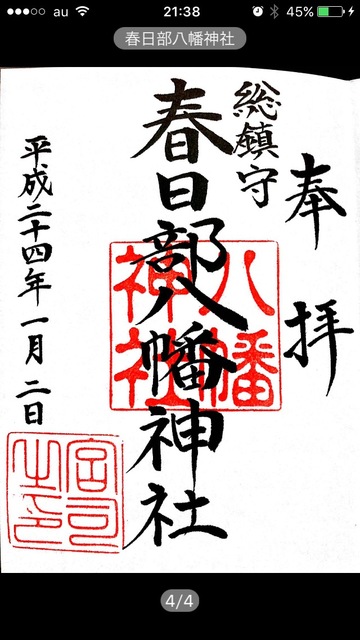 au 21:38 45%
春日部八幡神社
奉拝
総鎮守
春日部八幡神社
八幡
神社
平成二十四年一月二日
宮司
之印
4/4